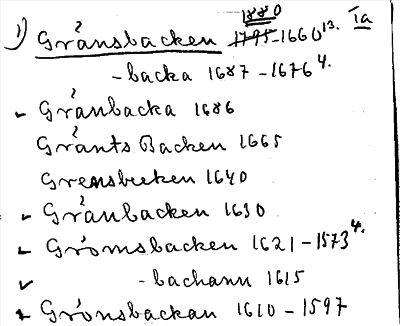 1880
1) Gränsbacken 1795-1660 13. Ia
-backa 1687-1676 4.
Gränbacka 1686
Gränts Backen 1665
Grensbecken 1640
Gränbacken 1630
Grömsbacken 1621-1573 4.
-bachann 1615
Grönsbackan 1610-1597